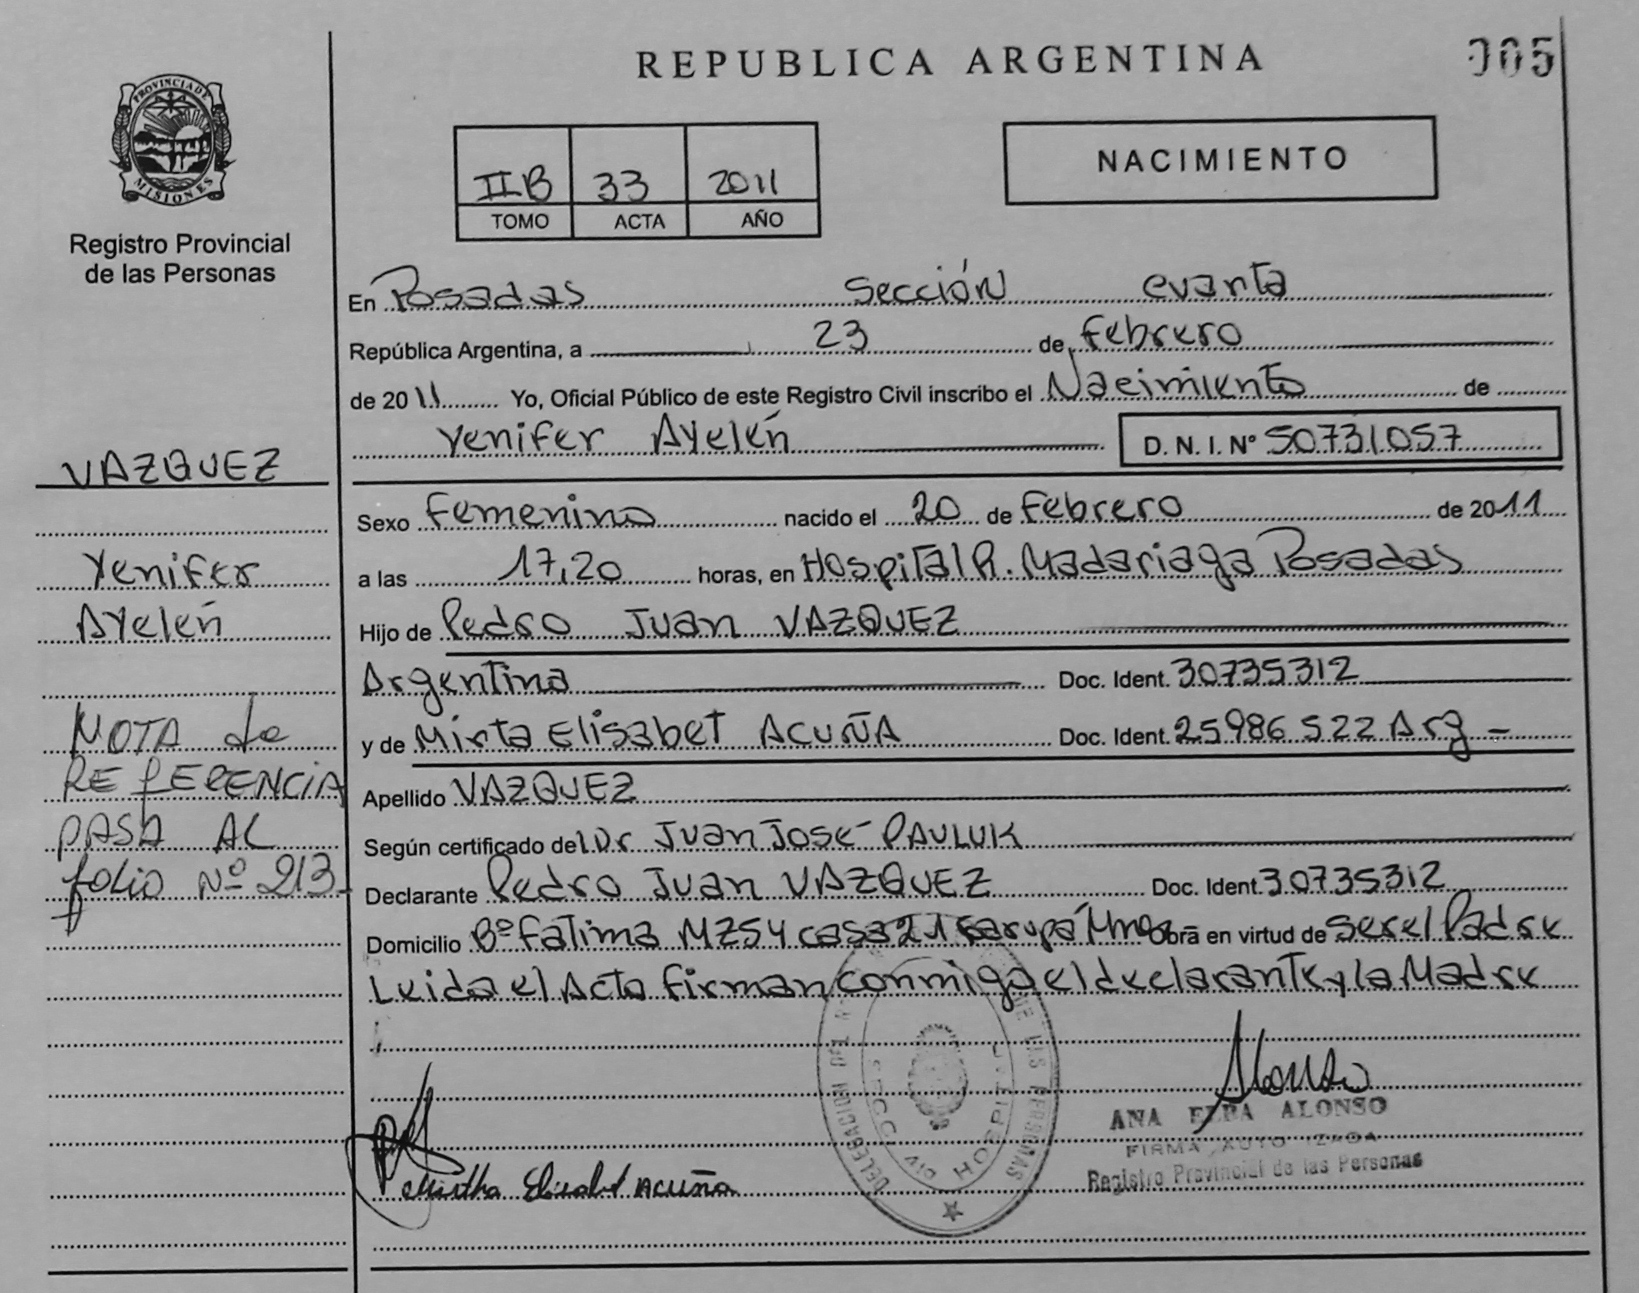 REPUBLICA ARGENTINA
005
PROVINCIA DE
MISIONES
Registro Provincial
de las Personas
IIB 33 2011
TOMO ACTA AÑO
NACIMIENTO
En Posadas Sección cuarta
República Argentina, a 23 de febrero
de 2011 Yo, Oficial Público de este Registro Civil inscribo el Nacimiento de
Yenifer Ayelén D. N. I. Nº 50731057
Sexo Femenino nacido el 20 de Febrero de 2011
a las 17,20 horas, en Hospital R. Madariaga Posadas
Hijo de Pedro Juan VAZQUEZ
Argentina Doc. Ident. 30735312
y de Mirta Elisabet ACUÑA Doc. Ident. 25986522 Arg -
Apellido VAZQUEZ
Según certificado del Dr Juan José PAULUK
Declarante Pedro Juan VAZQUEZ Doc. Ident 30735312
Domicilio Bº Fatima MZ54 casa21 Garupá Mnes Obra en virtud de Ser el Padre
Leida el Acta firman conmigo el declarante y la Madre
VAZQUEZ
Yenifer
Ayelén
NOTA de
REFERENCIA
PASA AL
folio Nº 213
Alonso
ANA ALONSO
FIRMA AUTORIZADA
Registro Provincial de las Personas
Mirtha Elisabet Acuña
DELEGACION DE LAS PERSONAS
SECC. 4ta HOSPITAL